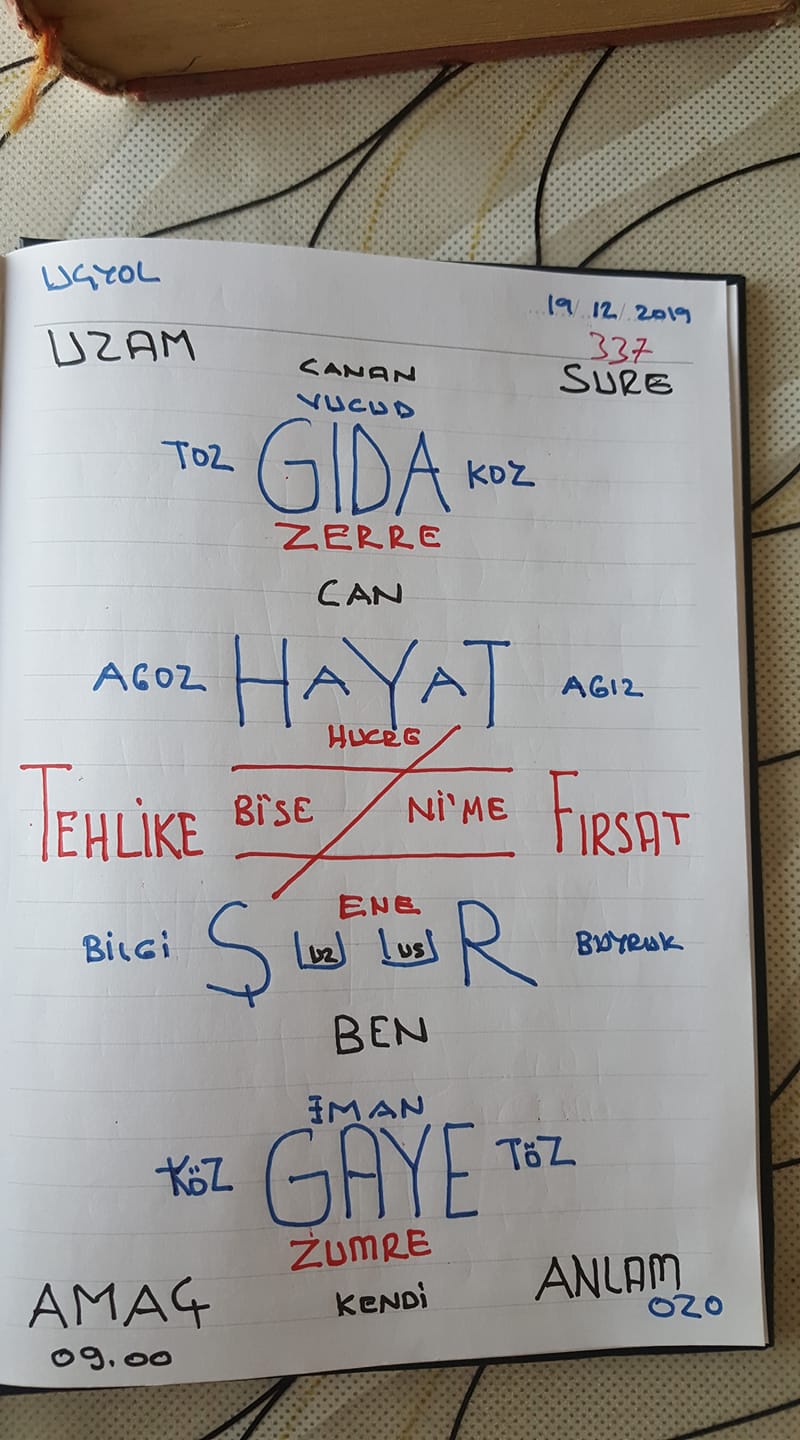 UÇYOL
19/12/2019
UZAM 337
CANAN SURE
VUCUD
TOZ GIDA KOZ
ZERRE
CAN
AGOZ HAYAT AGIZ
HUCRE
TEHLİKE BİSE Nİ'ME FIRSAT
ENE
BİLGİ ŞUUR BUYRUK
UZ US
BEN
İMAN
KÖZ GAYE TÖZ
ZUMRE
AMAÇ KENDİ ANLAM
OZO
09.00